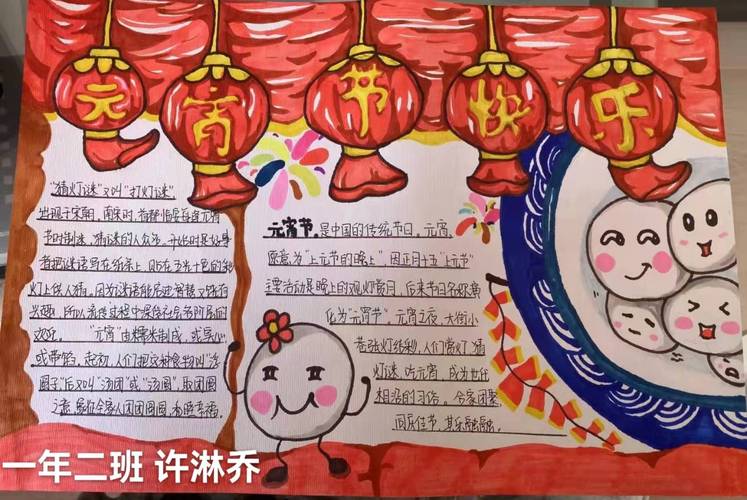 元宵节快乐
"猜灯谜"又叫"打灯谜"
出现于宋朝。南宋时,首都临安每逢元宵
节时制谜,猜谜的人众多。开始时是好事
者把谜语写在纸条上,贴在五光十色的彩
灯上供人猜。因为谜语能启迪智慧又饶有
兴趣,所以流传过程中深受社会各阶层的
欢迎。"元宵"由糯米制成,或实心,
或带馅。起初,人们把这种食物叫"浮
圆子"后又叫"汤团"或"汤圆",取团圆
之意,象征全家人团团圆圆,和睦幸福。
元宵节,是中国的传统节日,元宵
原意为"上元节的晚上",因正月十五"上元节"
主要活动是晚上的观灯赏月,后来节日名称演
化为"元宵节"。元宵之夜,大街小
巷张灯结彩,人们赏灯,猜
灯谜,吃元宵,成为世代
相沿的习俗。合家团聚、
同庆佳节,其乐融融。
一年二班 许淋乔